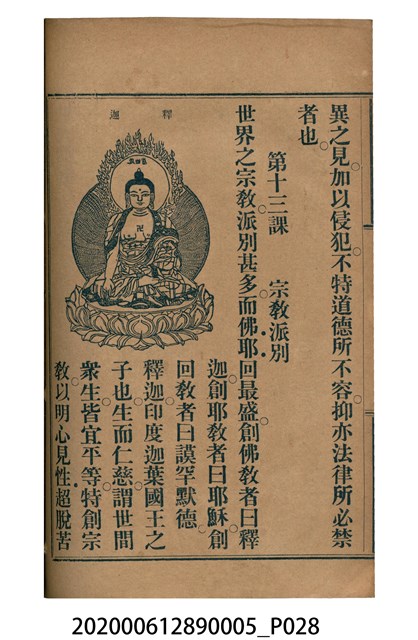 異之見加以侵犯不特道德所不容抑亦法律所必禁
者也
第十三課　宗教派別
世界之宗教派別甚多而佛耶回最盛創佛教者曰釋
迦創耶教者曰耶穌創
回教者曰謨罕默德
釋迦印度迦葉國王之
子也生而仁慈謂世間
衆生皆宜平等特創宗
教以明心見性超脫苦
釋迦
卍
202000612890005_P028